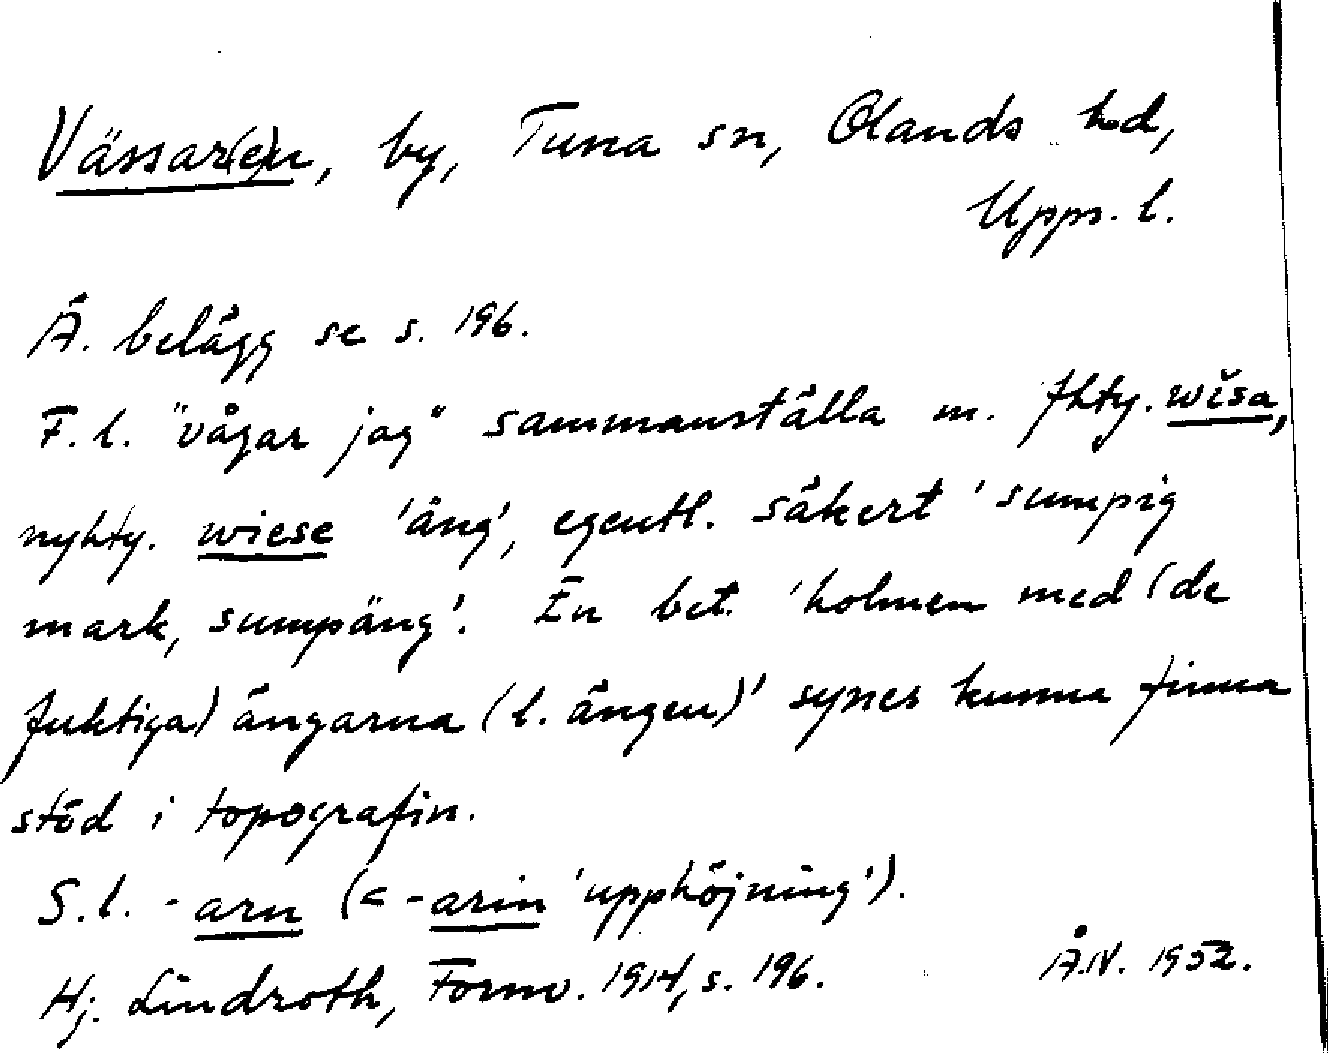 Vässar(e)n, by, Tuna sn, Olands hd,
Upps. l.
Ä. belägg se s. 196.
F. l. "vågar jag" sammanställa m. fhty. wĭsa,
nyhty. wiese 'äng', egentl. säkert 'sumpig
mark, sumpäng'. En bet. 'holmen med (de
fuktiga) ängarna (l. ängen)' synes kunna finna
stöd i topografin.
S. l. -arn (< -arin 'upphöjning').
Hj. Lindroth, Fornv. 1914, s. 196.
Å.N. 1952.